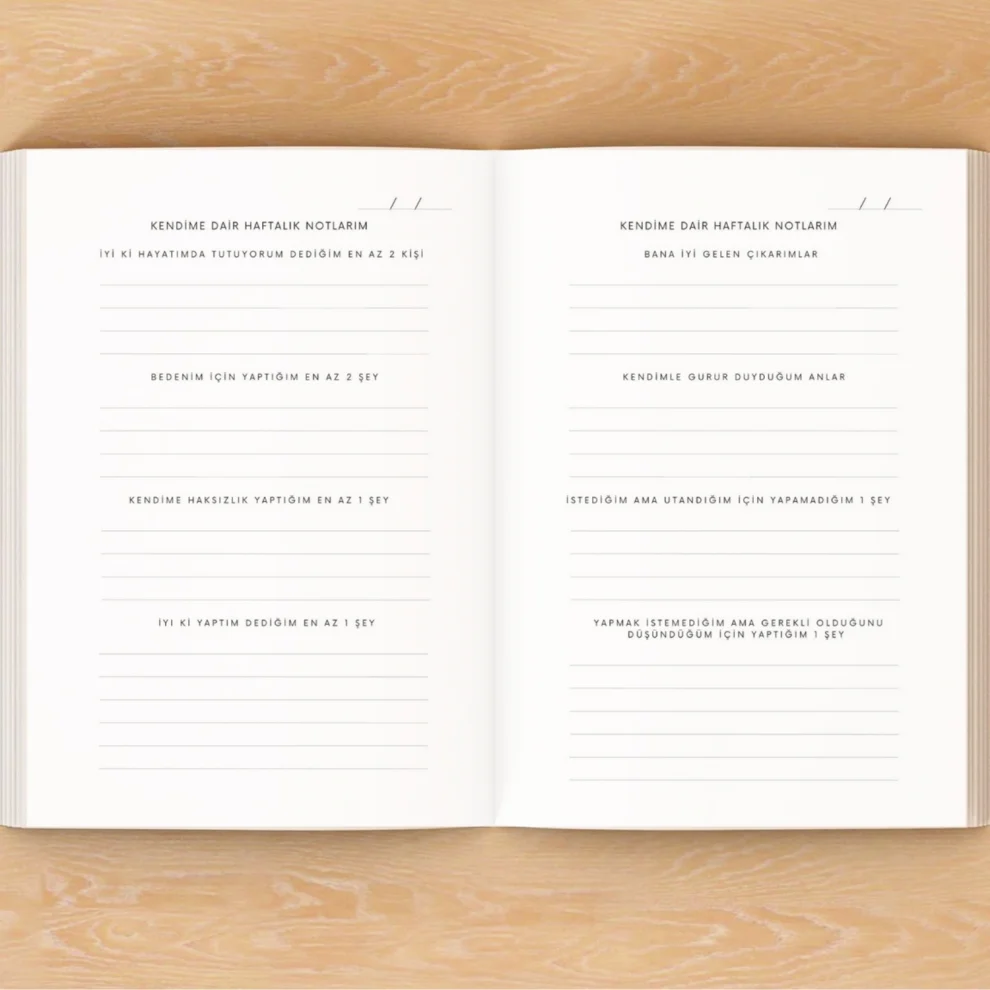 / /
KENDİME DAİR HAFTALIK NOTLARIM
İYİ Kİ HAYATIMDA TUTUYORUM DEDİĞİM EN AZ 2 KİŞİ
BEDENİM İÇİN YAPTIĞIM EN AZ 2 ŞEY
KENDİME HAKSIZLIK YAPTIĞIM EN AZ 1 ŞEY
İYI Kİ YAPTIM DEDİĞİM EN AZ 1 ŞEY
/ /
KENDİME DAİR HAFTALIK NOTLARIM
BANA İYİ GELEN ÇIKARIMLAR
KENDİMLE GURUR DUYDUĞUM ANLAR
İSTEDİĞİM AMA UTANDIĞIM İÇİN YAPAMADIĞIM 1 ŞEY
YAPMAK İSTEMEDİĞİM AMA GEREKLİ OLDUĞUNU
DÜŞÜNDÜĞÜM İÇİN YAPTIĞIM 1 ŞEY